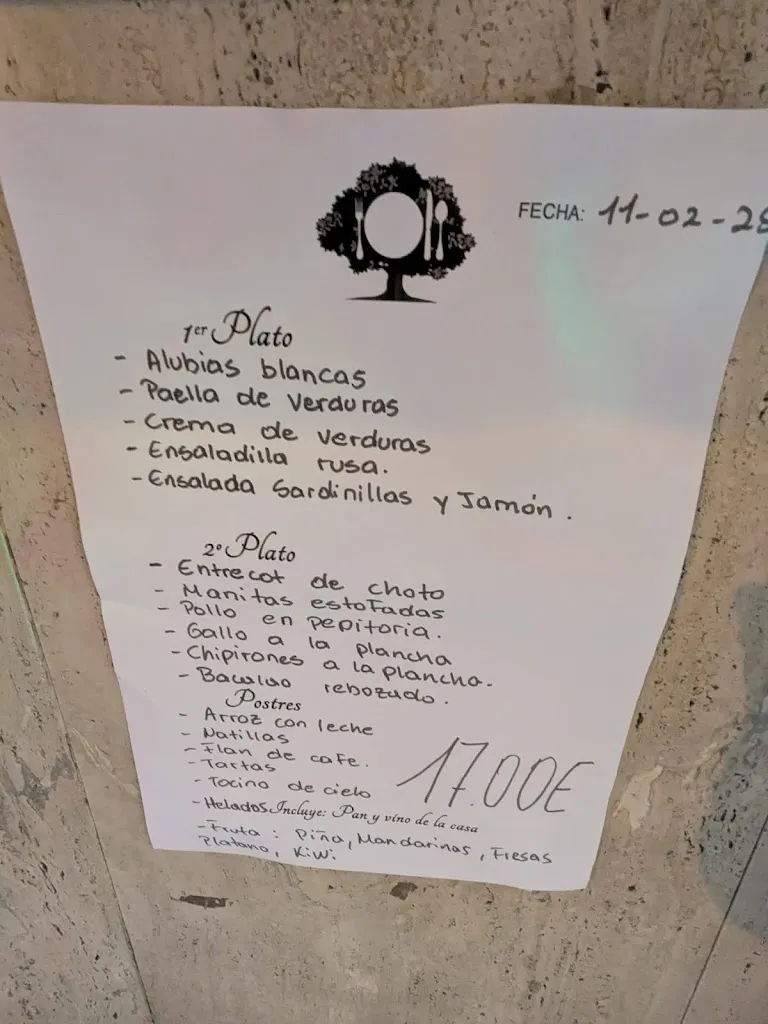 FECHA: 11-02-25
1er Plato
- Alubias blancas
- Paella de verduras
- Crema de verduras
- Ensaladilla rusa.
- Ensalada Sardinillas y Jamón.
2º Plato
- Entrecot de choto
- Manitas estofadas
- Pollo en pepitoria.
- Gallo a la plancha
- Chipirones a la plancha.
- Bacalao rebozado.
Postres
- Arroz con leche
- Natillas
- Flan de cafe.
- Tartas
- Tocino de cielo
17.00E
- Helados Incluye: Pan y vino de la casa
- Fruta: Piña, Mandarinas, Fresas
Platano, Kiwi